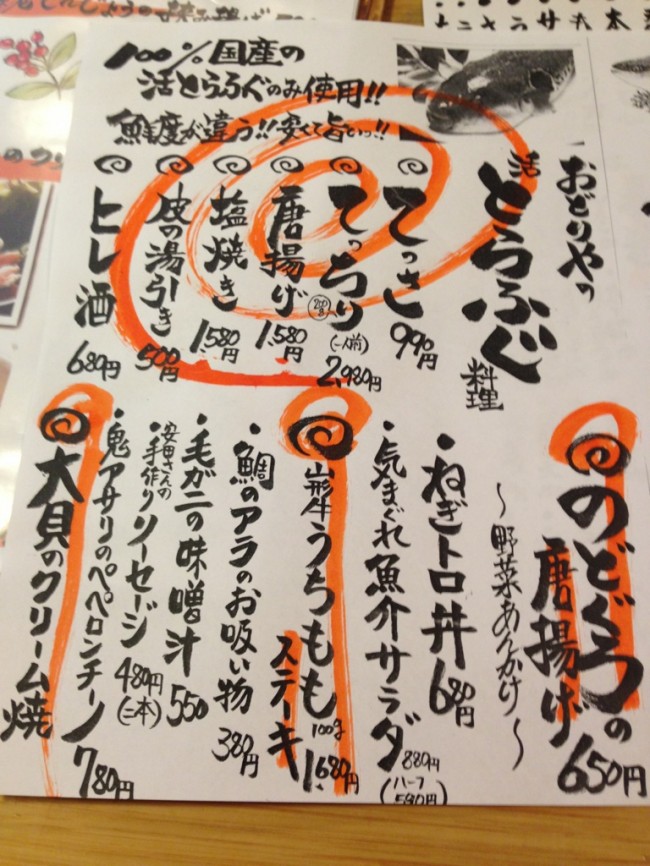 おどりやの
活とらふぐ料理
100%国産の
活とらふぐのみ使用!!
鮮度が違う!!安くて旨いっ!!
てっさ 990円
てっちり 200g (一人前) 2,980円
唐揚げ 1,580円
塩焼き 1,580円
皮の湯引き 500円
ヒレ酒 680円
のどぐろの
唐揚げ 650円
〜野菜あんかけ〜
・ねぎトロ丼 680円
・気まぐれ魚介サラダ 880円
(ハーフ 580円)
山形牛うちもも
ステーキ 100g 1,680円
・鯛のアラのお吸い物 380円
・毛ガニの味噌汁 550
安田さんの
・手作りソーセージ 480円 (二本)
・鬼アサリのペペロンチーノ 780円
大貝のクリーム焼